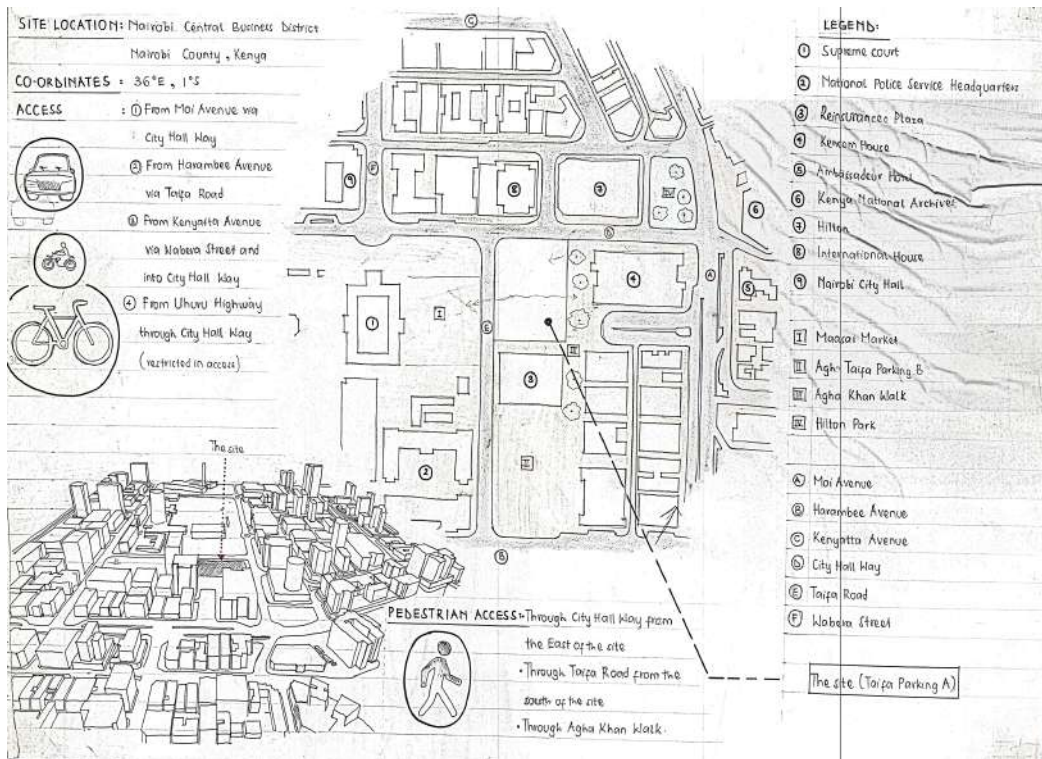 SITE LOCATION: Nairobi Central Business District
Nairobi County, Kenya
CO-ORDINATES : 36°E, 1°S
ACCESS : ① From Moi Avenue via
City Hall Way
② From Harambee Avenue
via Taifa Road
③ From Kenyatta Avenue
via Wabera Street and
into City Hall Way
④ From Uhuru Highway
through City Hall Way
(restricted in access)
The site
C
F
9
8
7
IV
6
D
A
4
5
1
I
E
III
3
2
II
B
PEDESTRIAN ACCESS:• Through City Hall Way from
the East of the site
• Through Taifa Road from the
south of the site
• Through Agha Khan Walk.
LEGEND:
① Supreme court
② National Police Service Headquarters
③ Reinsurance Plaza
④ Kencom House
⑤ Ambassadeur Hotel
⑥ Kenya National Archives
⑦ Hilton
⑧ International House
⑨ Nairobi City Hall
I Maasai Market
II Agha Taifa Parking B
III Agha Khan Walk
IV Hilton Park
Ⓐ Moi Avenue
Ⓑ Harambee Avenue
Ⓒ Kenyatta Avenue
Ⓓ City Hall Way
Ⓔ Taifa Road
Ⓕ Wabera Street
The site (Taifa Parking A)